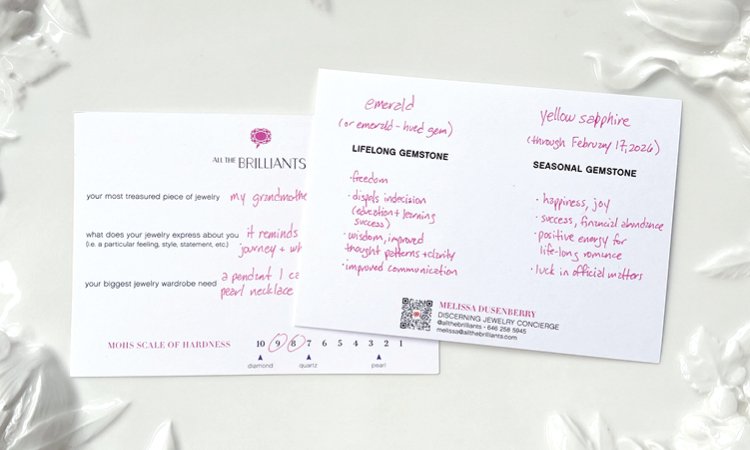 ALL THE BRILLIANTS
your most treasured piece of jewelry my grandmothe
what does your jewelry express about you it reminds
(i.e. a particular feeling, style, statement, etc.) journey + wh
a pendant I ca
your biggest jewelry wardrobe need pearl necklace
MOHS SCALE OF HARDNESS 10 9 8 7 6 5 4 3 2 1
diamond quartz pearl
emerald
(or emerald-hued gem)
LIFELONG GEMSTONE
· freedom
· dispels indecision
(education + learning
success)
· wisdom, improved
thought patterns + clarity
· improved communication
yellow sapphire
(through February 17, 2026)
SEASONAL GEMSTONE
· happiness, joy
· success, financial abundance
· positive energy for
life-long romance
· luck in official matters
MELISSA DUSENBERRY
DISCERNING JEWELRY CONCIERGE
@allthebrilliants • 646 258 5945
melissa@allthebrilliants.com